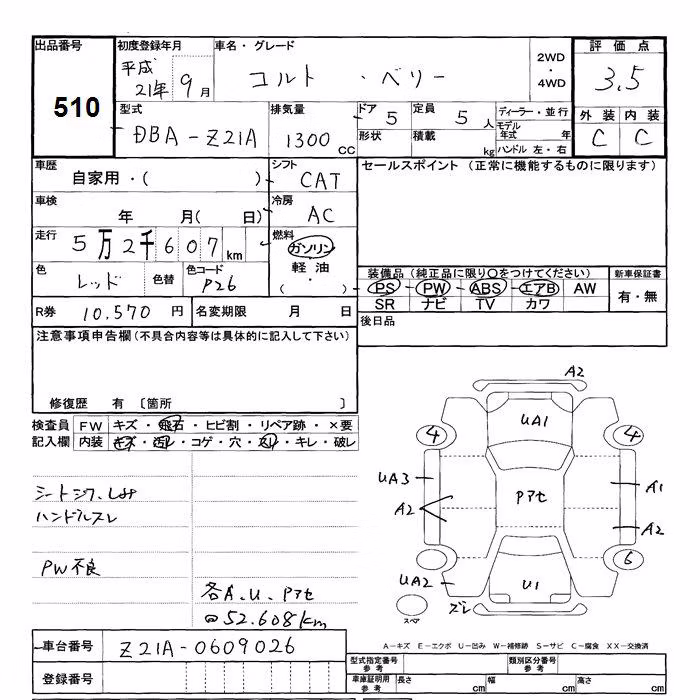 出品番号 初度登録年月 車名・グレード 2WD・4WD 評価点
510 平成21年9月 コルト ・ベリー 3.5
型式 排気量 ドア 5 定員 5人 ディーラー・並行 外装 内装
DBA-Z21A 1300CC 形状 積載 kg モデル年式 年 C C
ハンドル 左・右
車歴 シフト セールスポイント (正常に機能するものに限ります)
自家用・( ) CAT
車検 冷房
年 月( 日) AC
走行 燃料
5万2千607km ガソリン
軽油
色 色替 色コード ・( ) 装備品 (純正品に限り○をつけてください) 新車保証書
レッド P26 PS PW ABS エアB AW 有・無
SR ナビ TV カワ
R券 10,570円 名変期限 月 日 後日品
注意事項申告欄(不具合内容等は具体的に記入して下さい)
修復歴 有 〔箇所 〕
検査員 FW キズ・飛石・ヒビ割・リペア跡・×要
記入欄 内装 キズ・汚れ・コゲ・穴・スレ・キレ・破レ
シートシワ、しみ
ハンドルスレ
PW不良
各A、U、Pアセ
@52.608km
A2
UA1
4 4
UA3 Pアセ A1
A2 A2
6
UA2 U1
スペア ズレ
車台番号 Z21A-0609026
A-キズ E-エクボ U-凹み W-補修跡 S-サビ C-腐食 XX-交換済
登録番号 型式指定番号 参考 類別区分番号 参考
車庫証明用 参考 長さ cm 幅 cm 高さ cm